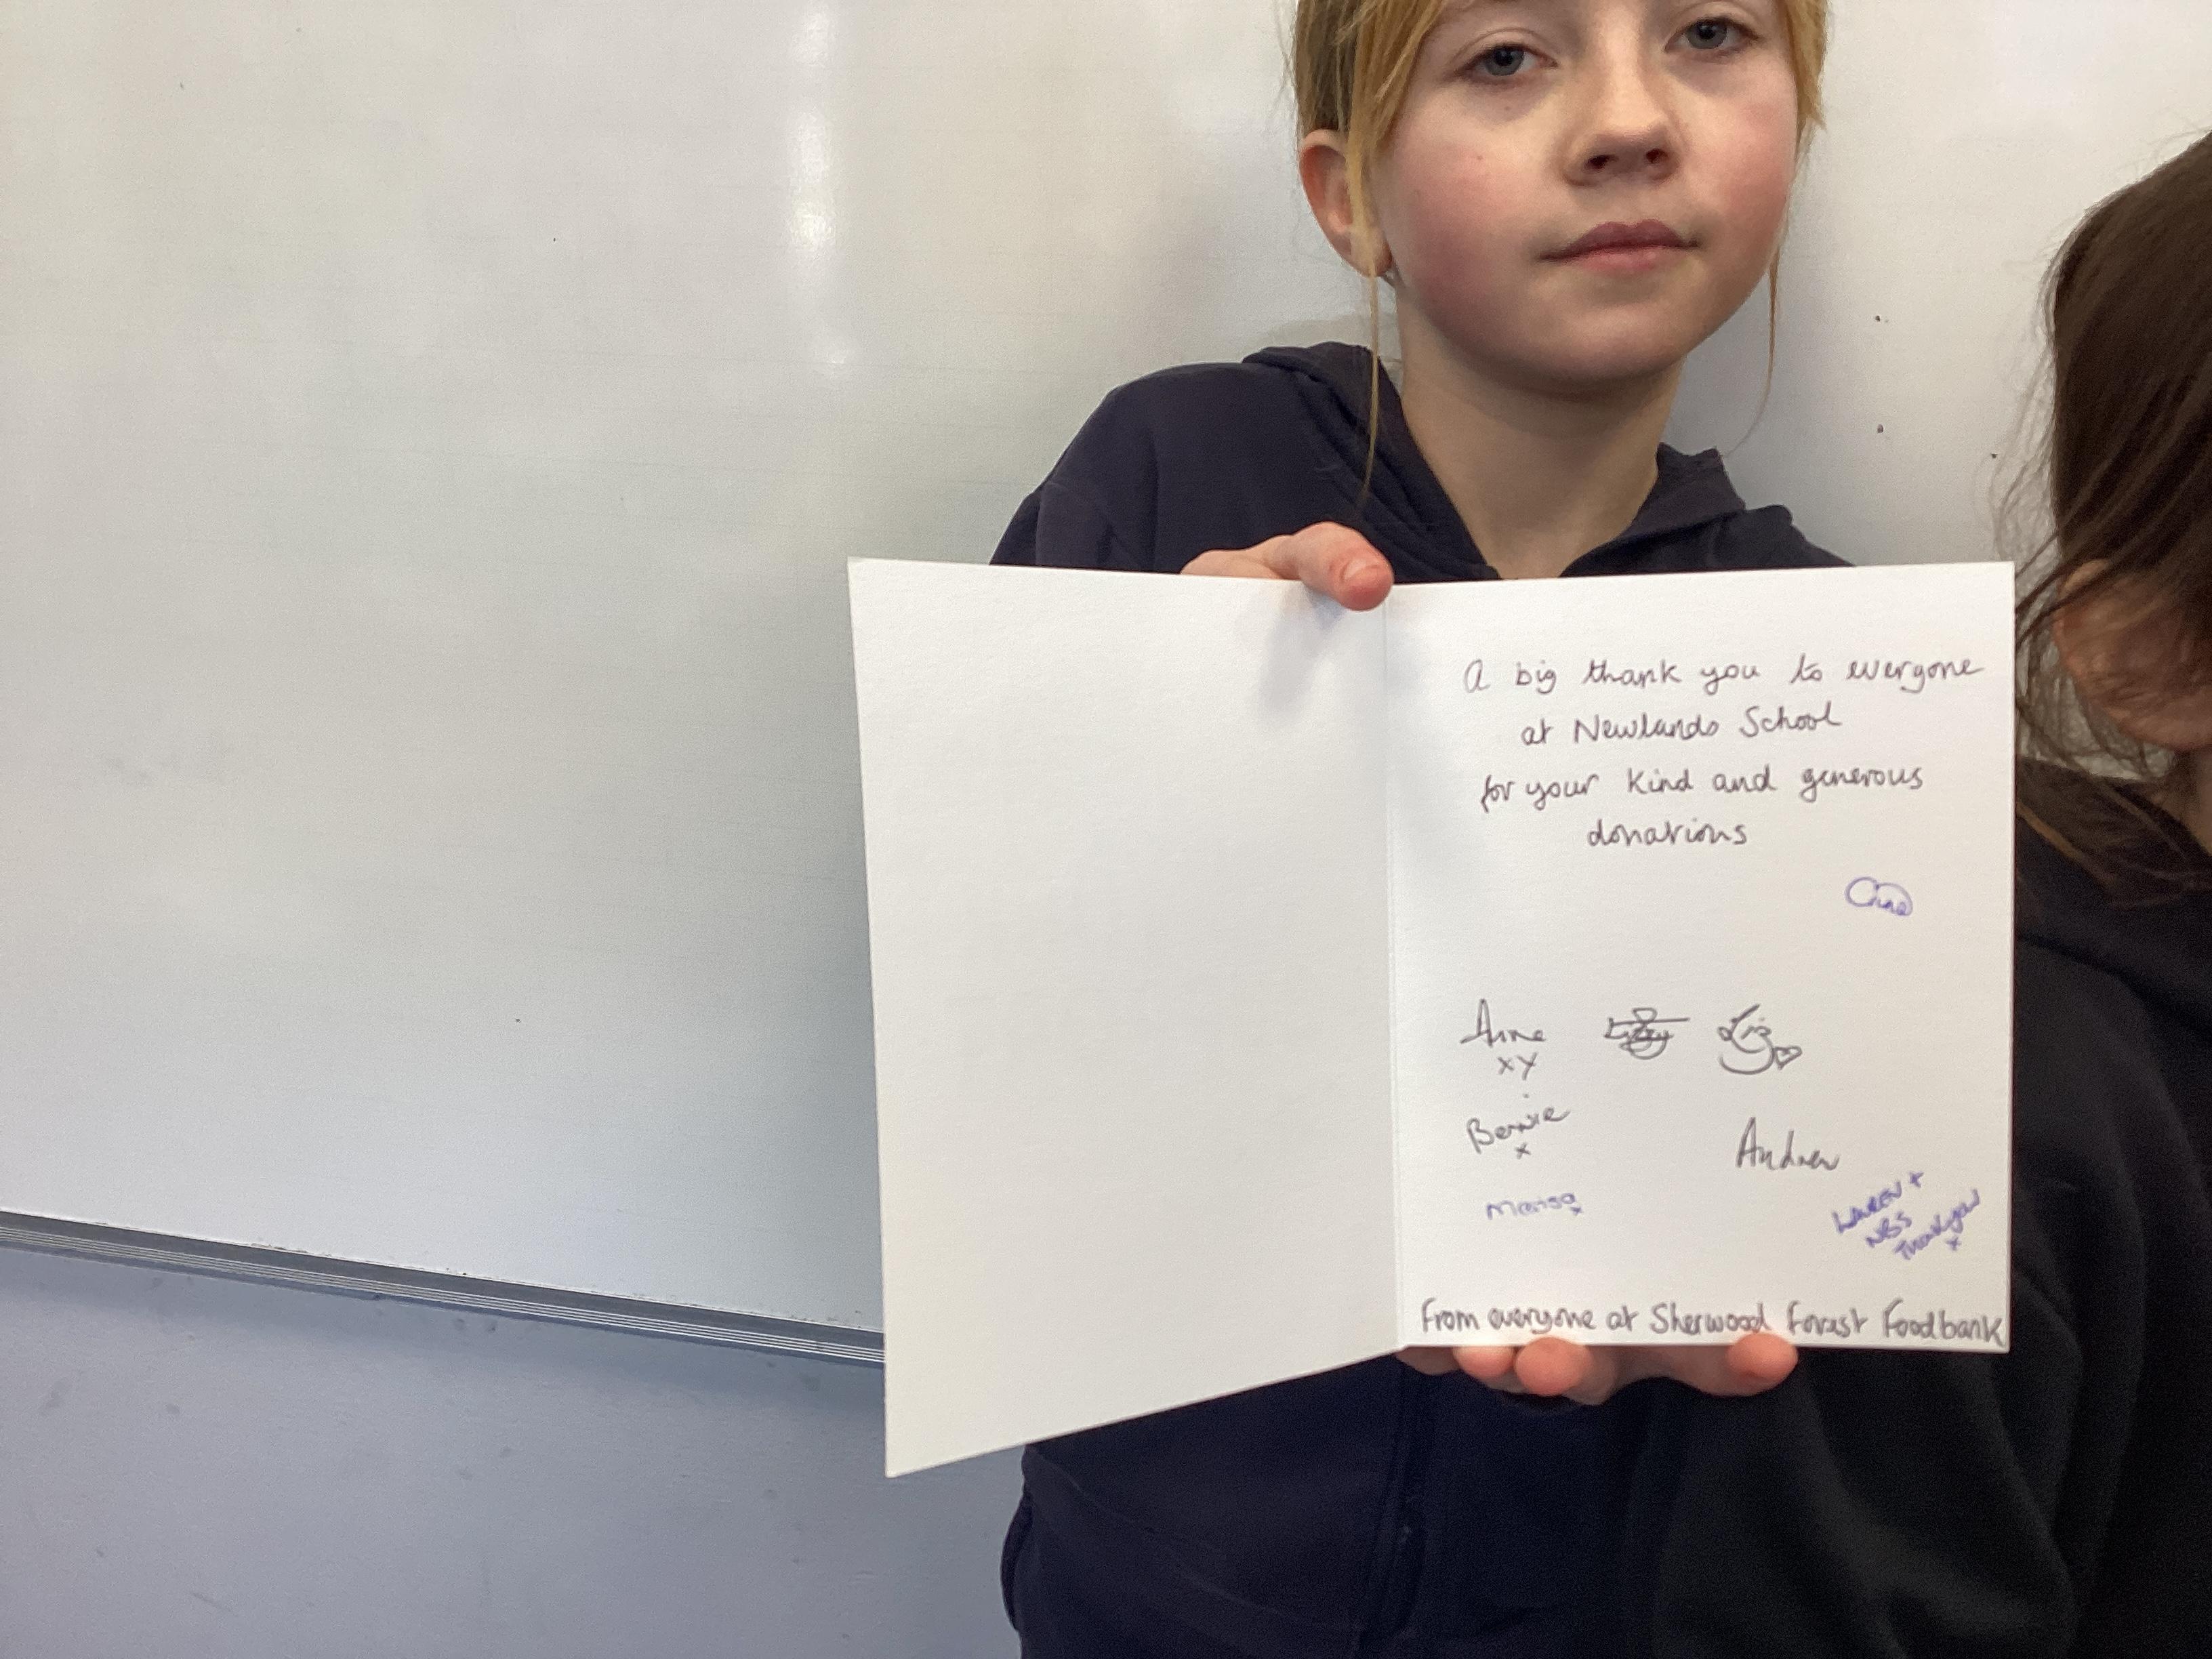 A big thank you to everyone
at Newlands School
for your kind and generous
donations
Anne Liz
xx
Bernie
x
Andrew
LAUREN +
NBS
Thankyou
x
From everyone at Sherwood Forest Foodbank